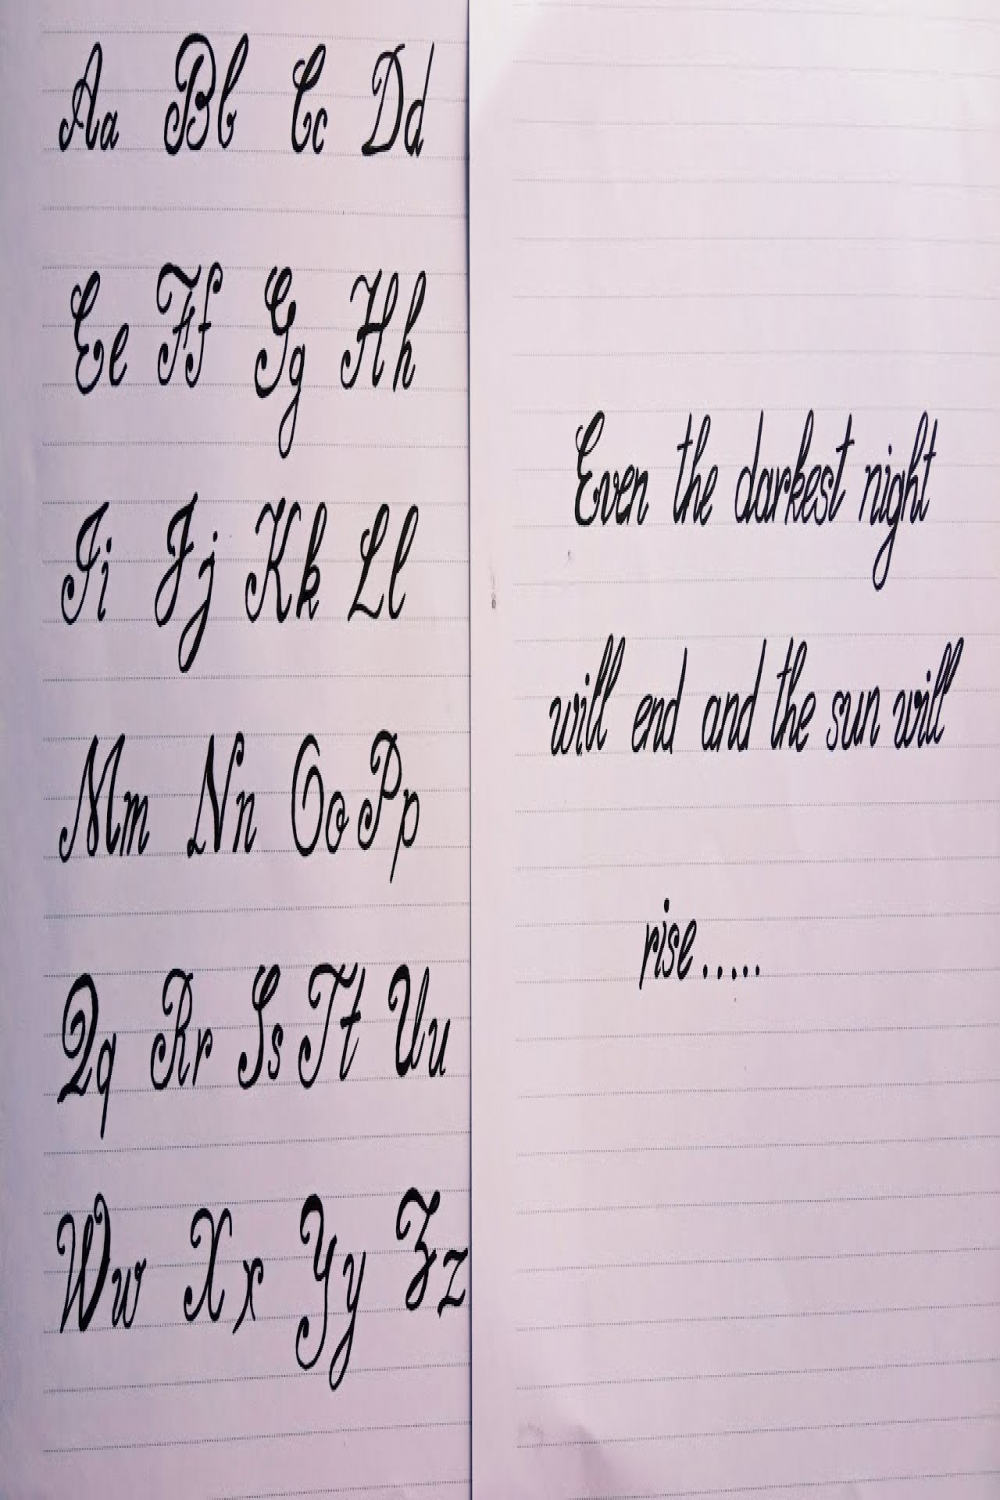 Aa Bb Cc Dd
Ee Ff Gg Hh
Ii Jj Kk Ll
Mm Nn Oo Pp
Qq Rr Ss Tt Uu
Ww Xx Yy Zz
Even the darkest night
will end and the sun will
rise.....